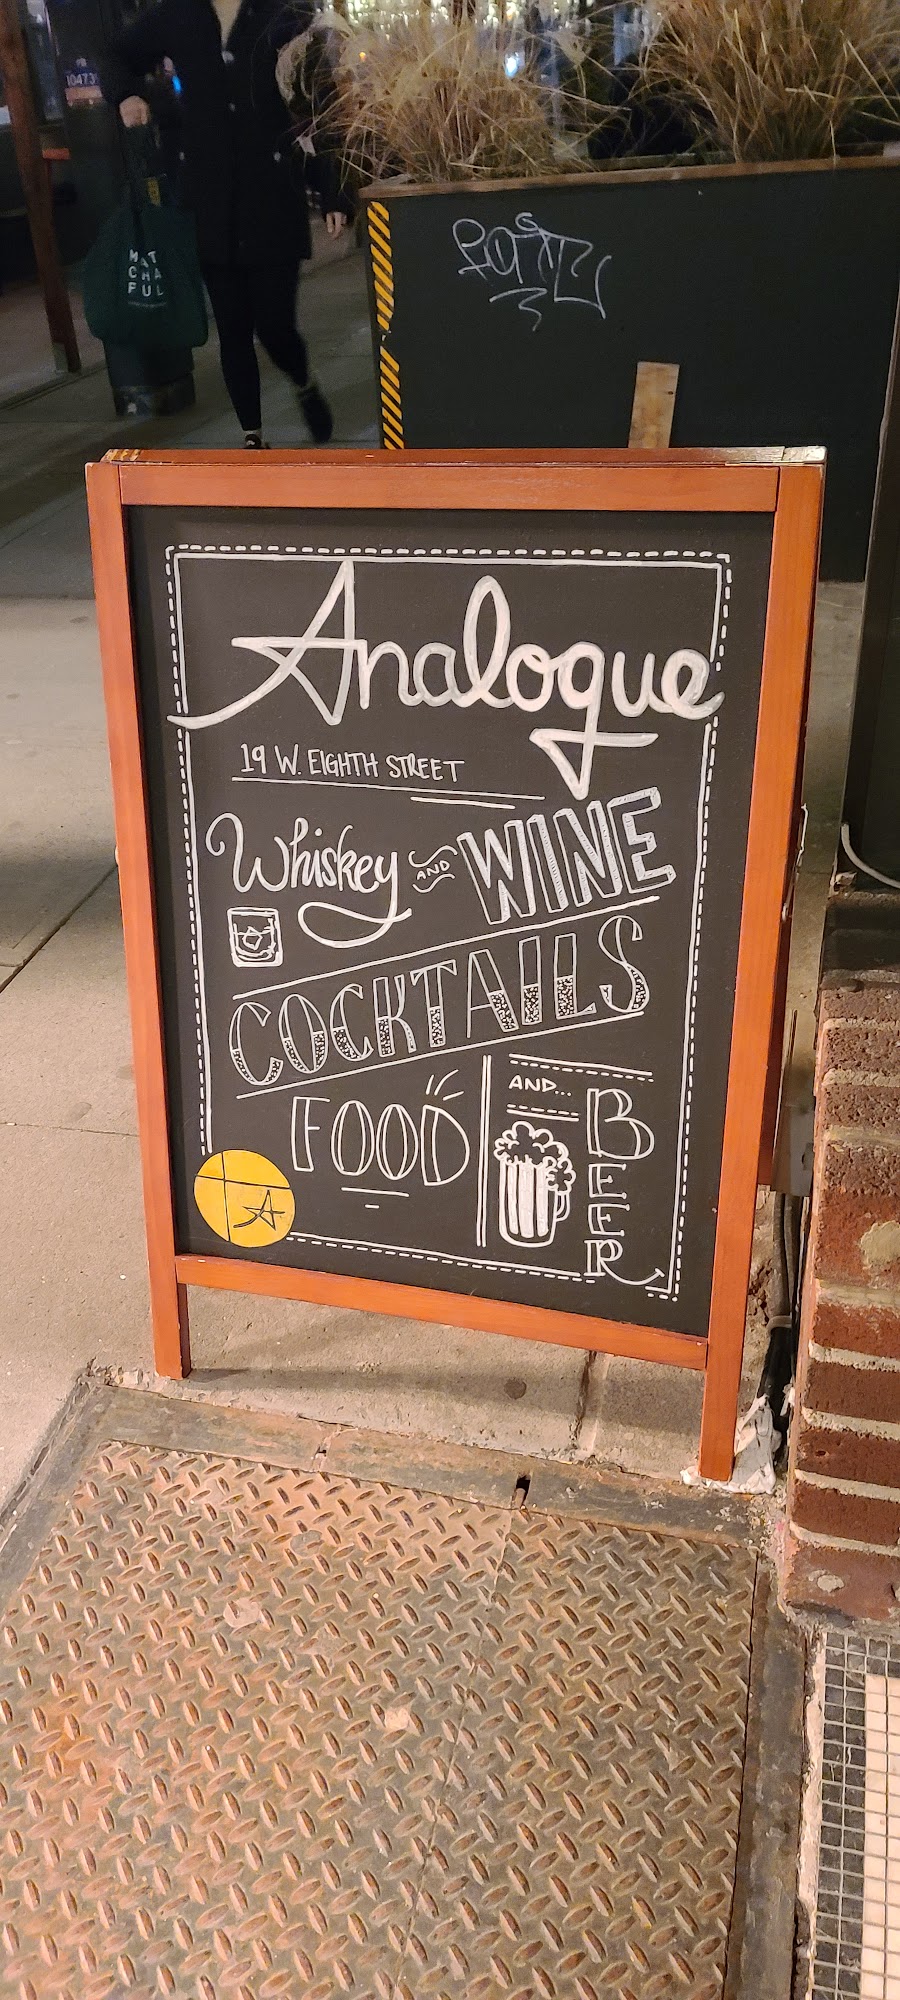 MAT
CHA
FUL
Analogue
19 W. EIGHTH STREET
Whiskey AND WINE
COCKTAILS
FOOD
AND...
BEER
A